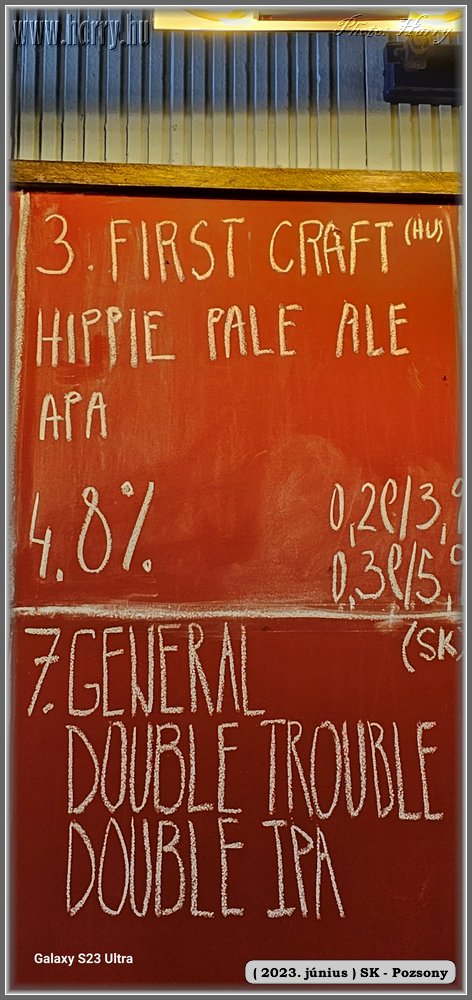 www.harry.hu
Photo: Harry
3. FIRST CRAFT (HU)
HIPPIE PALE ALE
APA
4.8%
0,2l/3,
0,3l/5,
7. GENERAL (SK)
DOUBLE TROUBLE
DOUBLE IPA
Galaxy S23 Ultra
( 2023. június ) SK - Pozsony